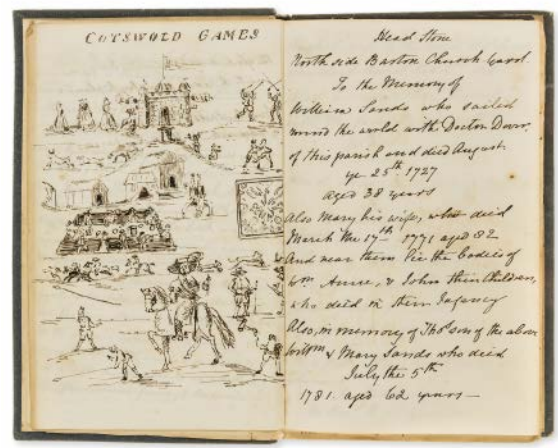 COTSWOLD GAMES
Head Stone
North side Barton Church yard.
To the Memory of
William Sands who sailed
round the world with Doctor Dover,
of this parish and died August
ye 25th 1727
aged 38 years
Also Mary his wife, who died
March the 17th 1771 aged 82
And near them lie the bodies of
Wm Anne, & John their Children,
who died in their Infancy
Also, in memory of Thos son of the above
Willm & Mary Sands who died
July the 5th
1781. aged 62 years —